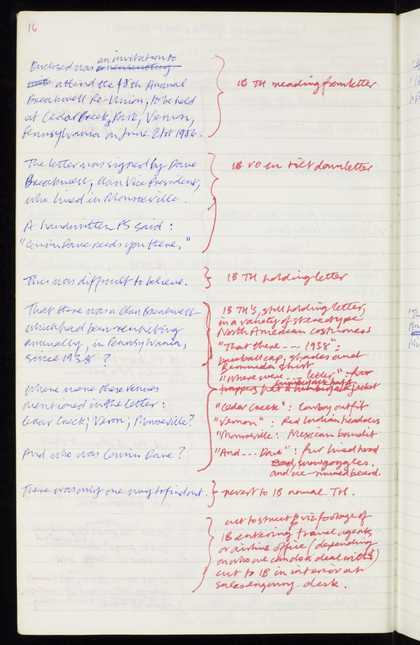 16
Enclosed was an invitation to
attend the 48th Annual
Breakwell Re-Union, to be held
at Cedar Creek Park, Vernon,
Pennsylvania on June 21st 1986.
IB TH reading from letter
The letter was signed by Dave
Breakwell, Clan Vice President,
who lived in Monroeville.
IB VO en tilt down letter
A handwritten PS said:
"Cousin Dave needs you there."
This was difficult to believe.
IB TH holding letter
That there was a Clan Breakwell
which had been reuniting
annually, in Pennsylvania,
since 1938?
IB TH's, still holding letter,
in a variety of stereotype
North American costumes
"That there --- 1938":
baseball cap, shades and
Bermuda shirt
"Where were ... letter": fur
trapper
Where were these venues
mentioned in the letter:
Cedar Creek; Vernon; Monroeville?
"Cedar Creek": Cowboy outfit
"Vernon": Red Indian headdress
"Monroeville": Mexican bandit
And who was Cousin Dave?
"And... Dave":
There was only one way to find out.
revert to IB normal TH.
cut to street & vic footage of
IB entering travel agents
or airline office (depending
on who we can do a deal with)
cut to IB in interior at
sales enquiry desk.